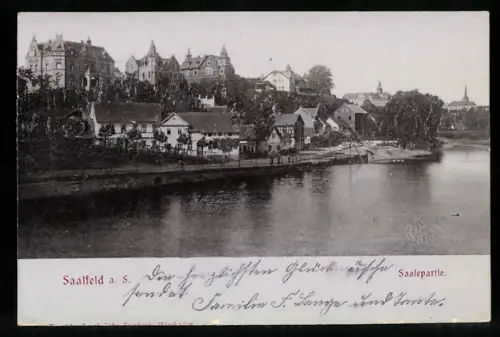 Saalfeld a. S.
Saalepartie.
Die herzlichsten Glückwüsche
sendet
Familie F. Lange und Tante.